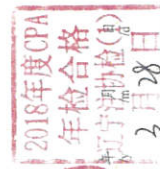 2018年度CPA
年检合格
辽宁注协
3月28日